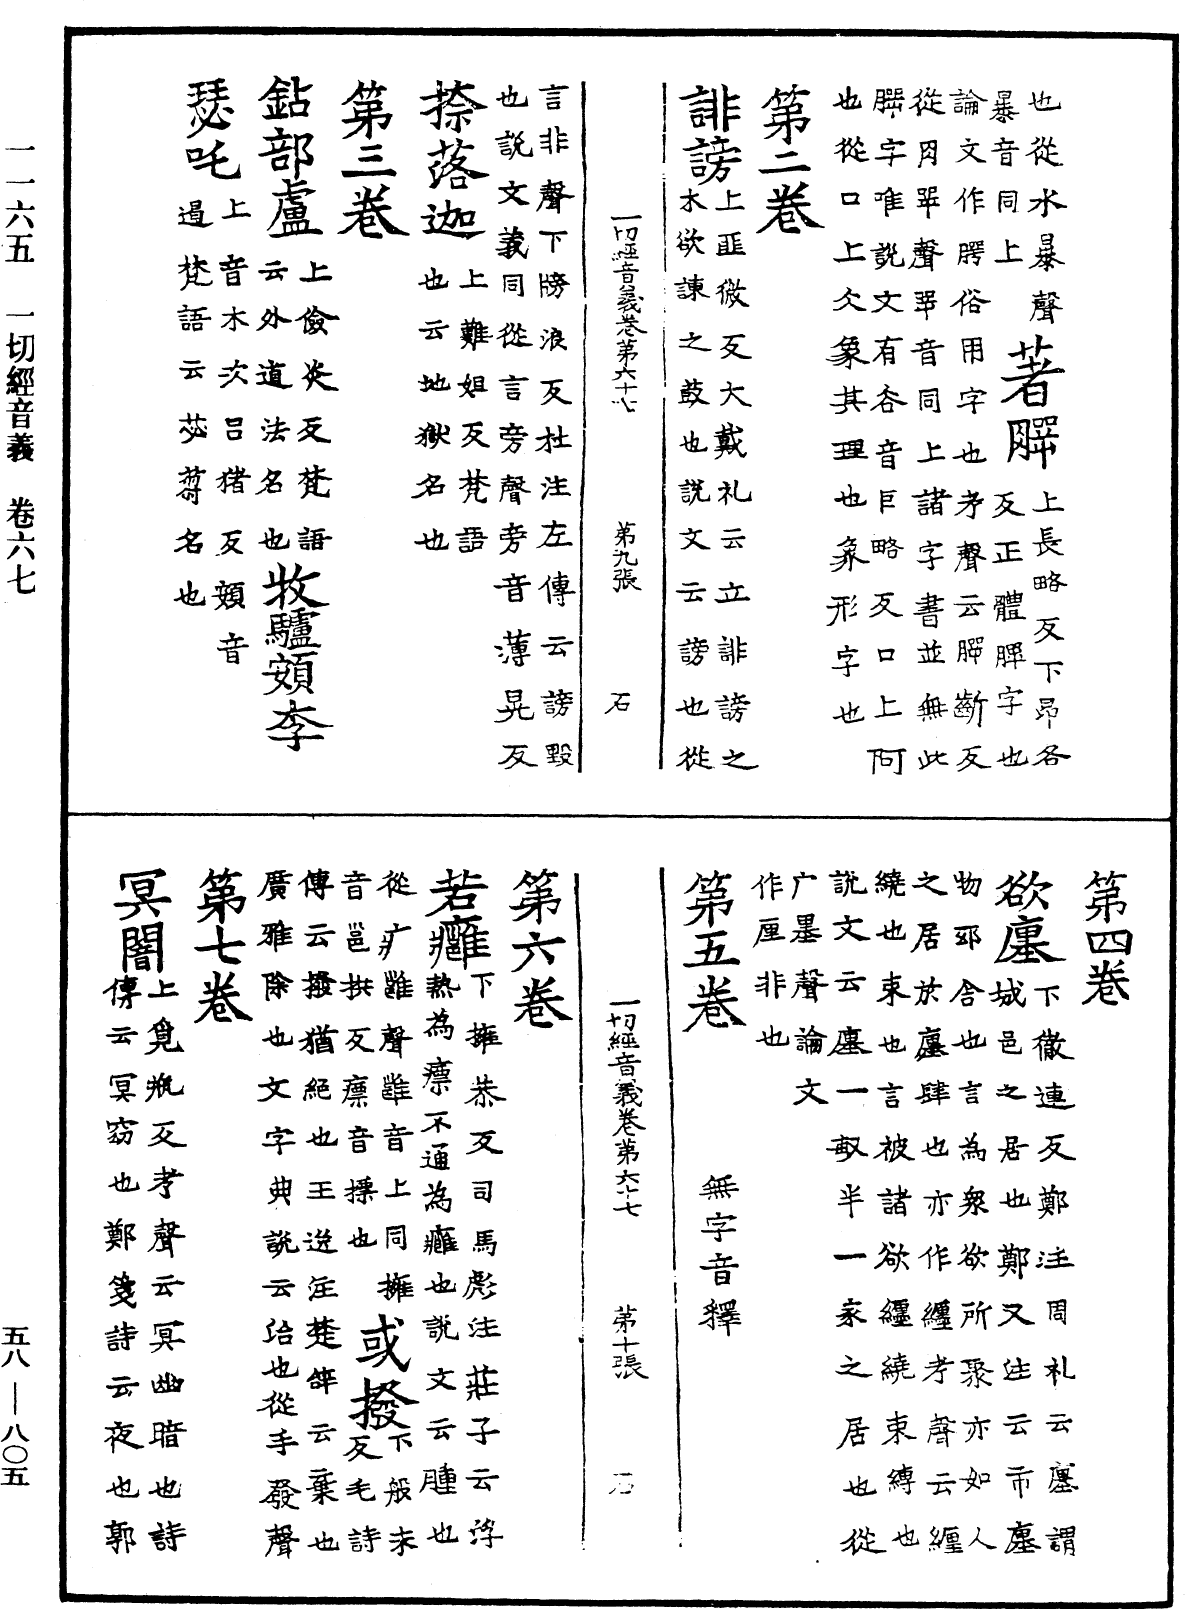 也從水暴聲
暴音同上
著䐙
上長略反下昂各
反正體䐙字也
論文作腭俗用字也考聲云䐙齗反
從肉咢聲咢音同上諸字書並無此
䐙字唯說文有谷音巨略反口上阿
也從口上仌象其理也象形字也
第二卷
誹謗
上匪微反大戴礼云立誹謗之
木欲諫之鼓也說文云謗也從
一切經音義卷第六十七　第九張　石
言非聲下牓浪反杜注左傳云謗毀
也說文義同從言旁聲旁音薄晃反
捺落迦
上難姐反梵語
也云地獄名也
第三卷
鉆部盧
上儉炎反梵語
云外道法名也
牧驢頞李
上音木次吕猪反頞音
遏梵語云苾蒭名也
瑟吒
第四卷
欲廛
下徹連反鄭注周礼云廛謂
城邑之居也鄭又注云市廛
物邸舍也言為衆欲所聚亦如人
之居於廛肆也亦作纏考聲云纏
繞也束也言被諸欲纏繞束縛也
說文云廛一畝半一家之居也從
广墨聲論文
作厘非也
第五卷
無字音釋
一切經音義卷第六十七　第十張　石
第六卷
若癰
下擁恭反司馬彪注莊子云浮
熱為瘭不通為癰也說文云腫也
從疒雝聲雝音上同擁
音邕拱反瘭音摽也
或撥
下般末
反毛詩
傳云撥猶絕也王逸注楚辝云棄也
廣雅除也文字典說云治也從手發聲
第七卷
冥闇
上覓瓶反考聲云冥幽暗也詩
傳云冥窈也鄭箋詩云夜也郭
一一六五　一切經音義　卷六七
五八—八〇五